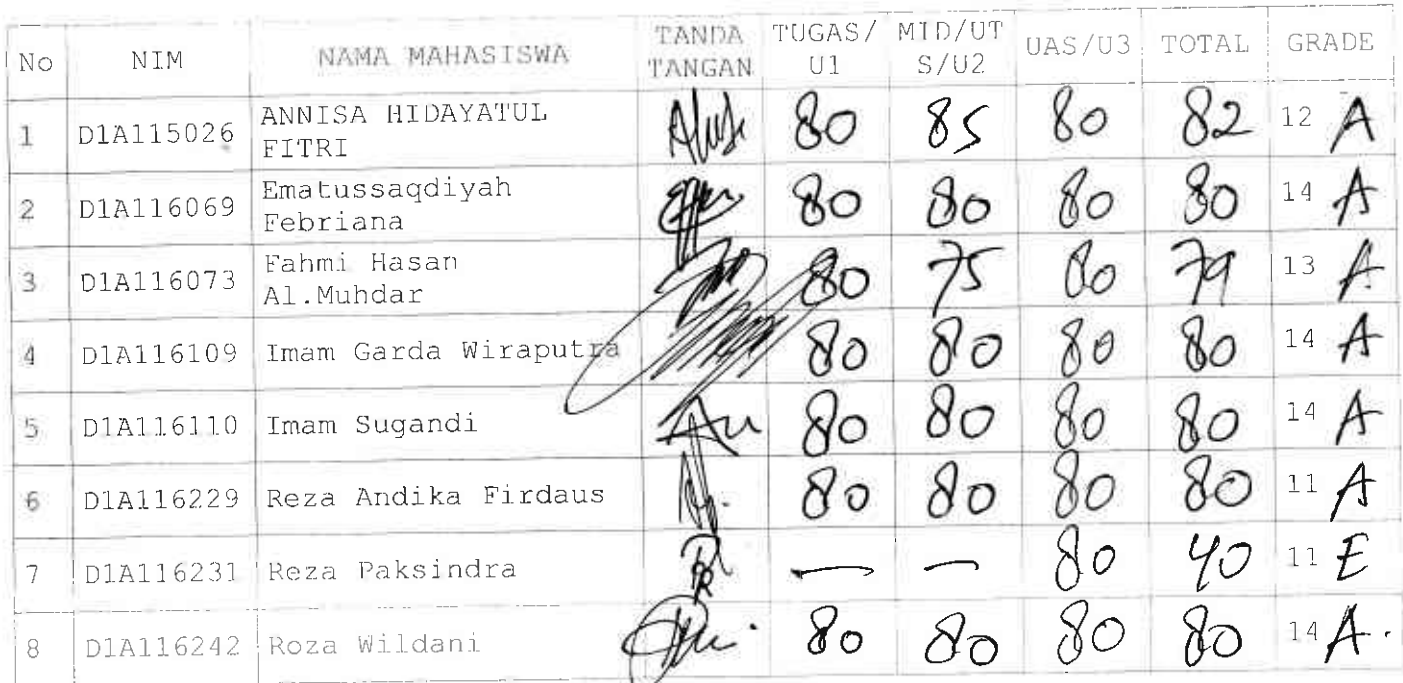 No NIM NAMA MAHASISWA TANDA TANGAN TUGAS/U1 MID/UTS/U2 UAS/U3 TOTAL GRADE
1 D1A115026 ANNISA HIDAYATUL FITRI 80 85 80 82 12 A
2 D1A116069 Ematussaqdiyah Febriana 80 80 80 80 14 A
3 D1A116073 Fahmi Hasan Al.Muhdar 80 75 80 79 13 A
4 D1A116109 Imam Garda Wiraputra 80 80 80 80 14 A
5 D1A116110 Imam Sugandi 80 80 80 80 14 A
6 D1A116229 Reza Andika Firdaus 80 80 80 80 11 A
7 D1A116231 Reza Paksindra — — 80 40 11 E
8 D1A116242 Roza Wildani 80 80 80 80 14 A.